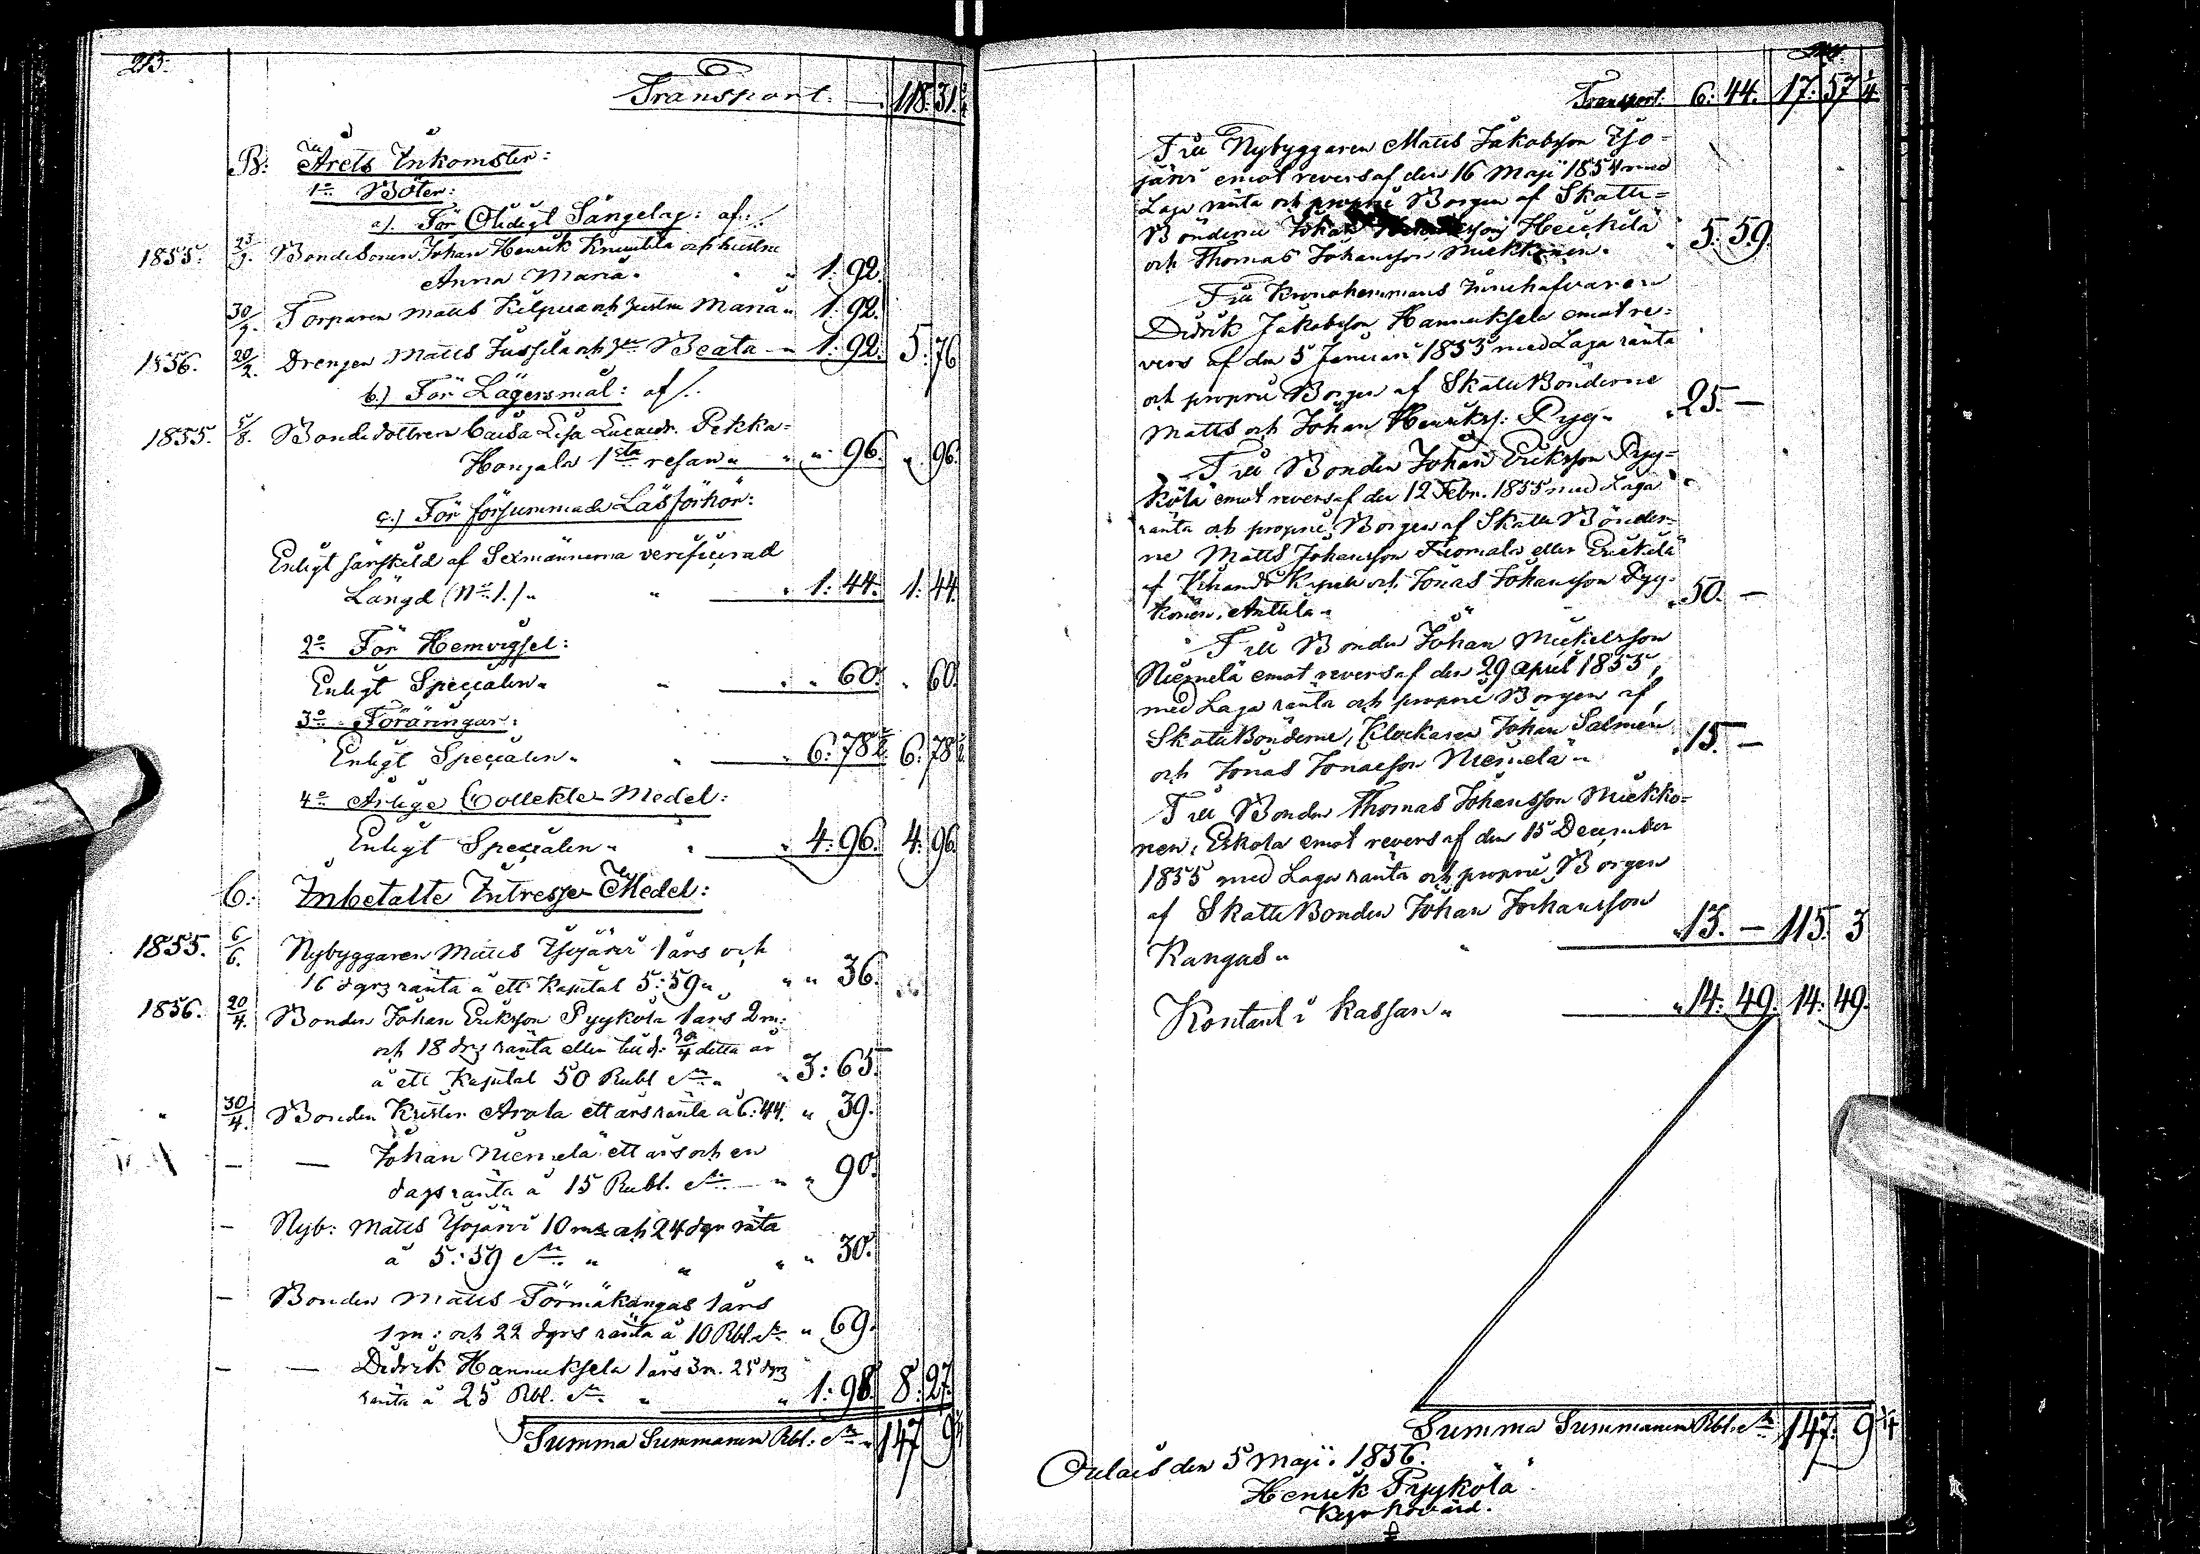 213.
Transport. — 118. 31 3/4
B: Årets Inkomster:
1o Böter:
a). För Otidigt Sängelag: af:
1855. 23/9. BondeSonen Johan Henrik Knuutila och hustru
Anna Maria. " " 1: 92.
30/9. Torparen Matts Kilpua och hustru Maria " 1: 92.
1856. 20/2. Drengen Matts Jussila och Hu Beata — " 1: 92. 5. 76
b.) För Lägersmål: af
1855. 5/8. Bondedottren Caisa Lisa Lucaedr. Pekka=
Honjala 1sta resan " " " 96. " 96.
c.) För försummade Läsförhör:
Enligt särskild af Sexmännerna verificerad
Längd (No 1.) " " — " 1: 44. 1: 44.
2o För Hemvigsel:
Enligt Specialen " " — " " 60. " 60.
3o Föräringar:
Enligt Specialen " " — " 6: 78 1/2. 6: 78 1/2.
4o Årlige Collekte Medel:
Enligt Specialen " " — " 4: 96. 4: 96.
C: Inbetalte Intresse Medel:
1855. 6/6. Nybyggaren Matts Isojärvi 1 års och
16 dgrs ränta å ett Kapital 5: 59 " " " 36.
1856. 20/4. Bonden Johan Eriksson Pyykölä 1 års 2 m:
och 18 dgs ränta eller till d: 30/4 detta år
å ett Kapital 50 Rubl Sr " " 3: 65.
" 30/4. Bonden Krister Arola ett års ränta å 6: 44. " 39.
— — Johan Niemelä ett års och en
dags ränta å 15 Rubl. Sr — " " 90.
— Nyb: Matts Isojärvi 10 mr och 24 dgr räta
å 5: 59 Sr " " " " 30.
— Bonden Matts Törmäkangas 1 års
1 m: och 22 dgrs ränta å 10 Rbl. Sr " 69.
— — Didrik Hannuksela 1 års 3 m. 25 dgs
ränta å 25 Rbl. Sr " — " 1: 98. 8: 27.
Summa Summarum Rbl: Sr " 147 9 1/4
Transport: 6: 44. 17: 57 1/4
Till Nybyggaren Matts Jakobsson Iso=
järvi emot revers af den 16 Maji 1854 med
Laga ränta och proprié Borgen af Skatte=
Bönderne Johan Heikkilä
och Thomas Johansson Miekkonen. " 5: 59.
Till Kronohemmans Innehafvaren
Didrik Jakobsson Hannuksela emot re=
vers af den 5 Januari 1855 med Laga ränta
och proprié Borgen af SkatteBönderne
Matts och Johan Henriks: Pyy " " 25. —
Till Bonden Johan Eriksson Pyy=
kölä emot revers af den 12 Febr. 1855 med Laga
ränta och proprié Borgen af Skatte Bönder=
ne Matts Johansson Tuomala eller Erkkilä
af Pihando Kapell och Jonas Johansson Pyy=
könen, Anttila " " 50. —
Till Bonden Johan Mickelsson
Niemelä emot revers af den 29 April 1855,
med Laga ränta och proprié Borgen af
SkatteBönderne, Klockaren Johan Salmén
och Jonas Jonasson Niemelä " " 15. —
Till Bonden Thomas Johansson Miekko=
nen, Eskola emot revers af den 15 December
1855 med Laga ränta och proprié Borgen
af SkatteBonden Johan Johansson
Kangas " " — " 13. — 115. 3
Kontant i Kassan " — " 14: 49. 14: 49.
Summa Summarum Rbl. Sr 147. 9 1/4
Oulais den 5 Maji. 1856.
Henrik Pyykölä
Kyrkovärd.